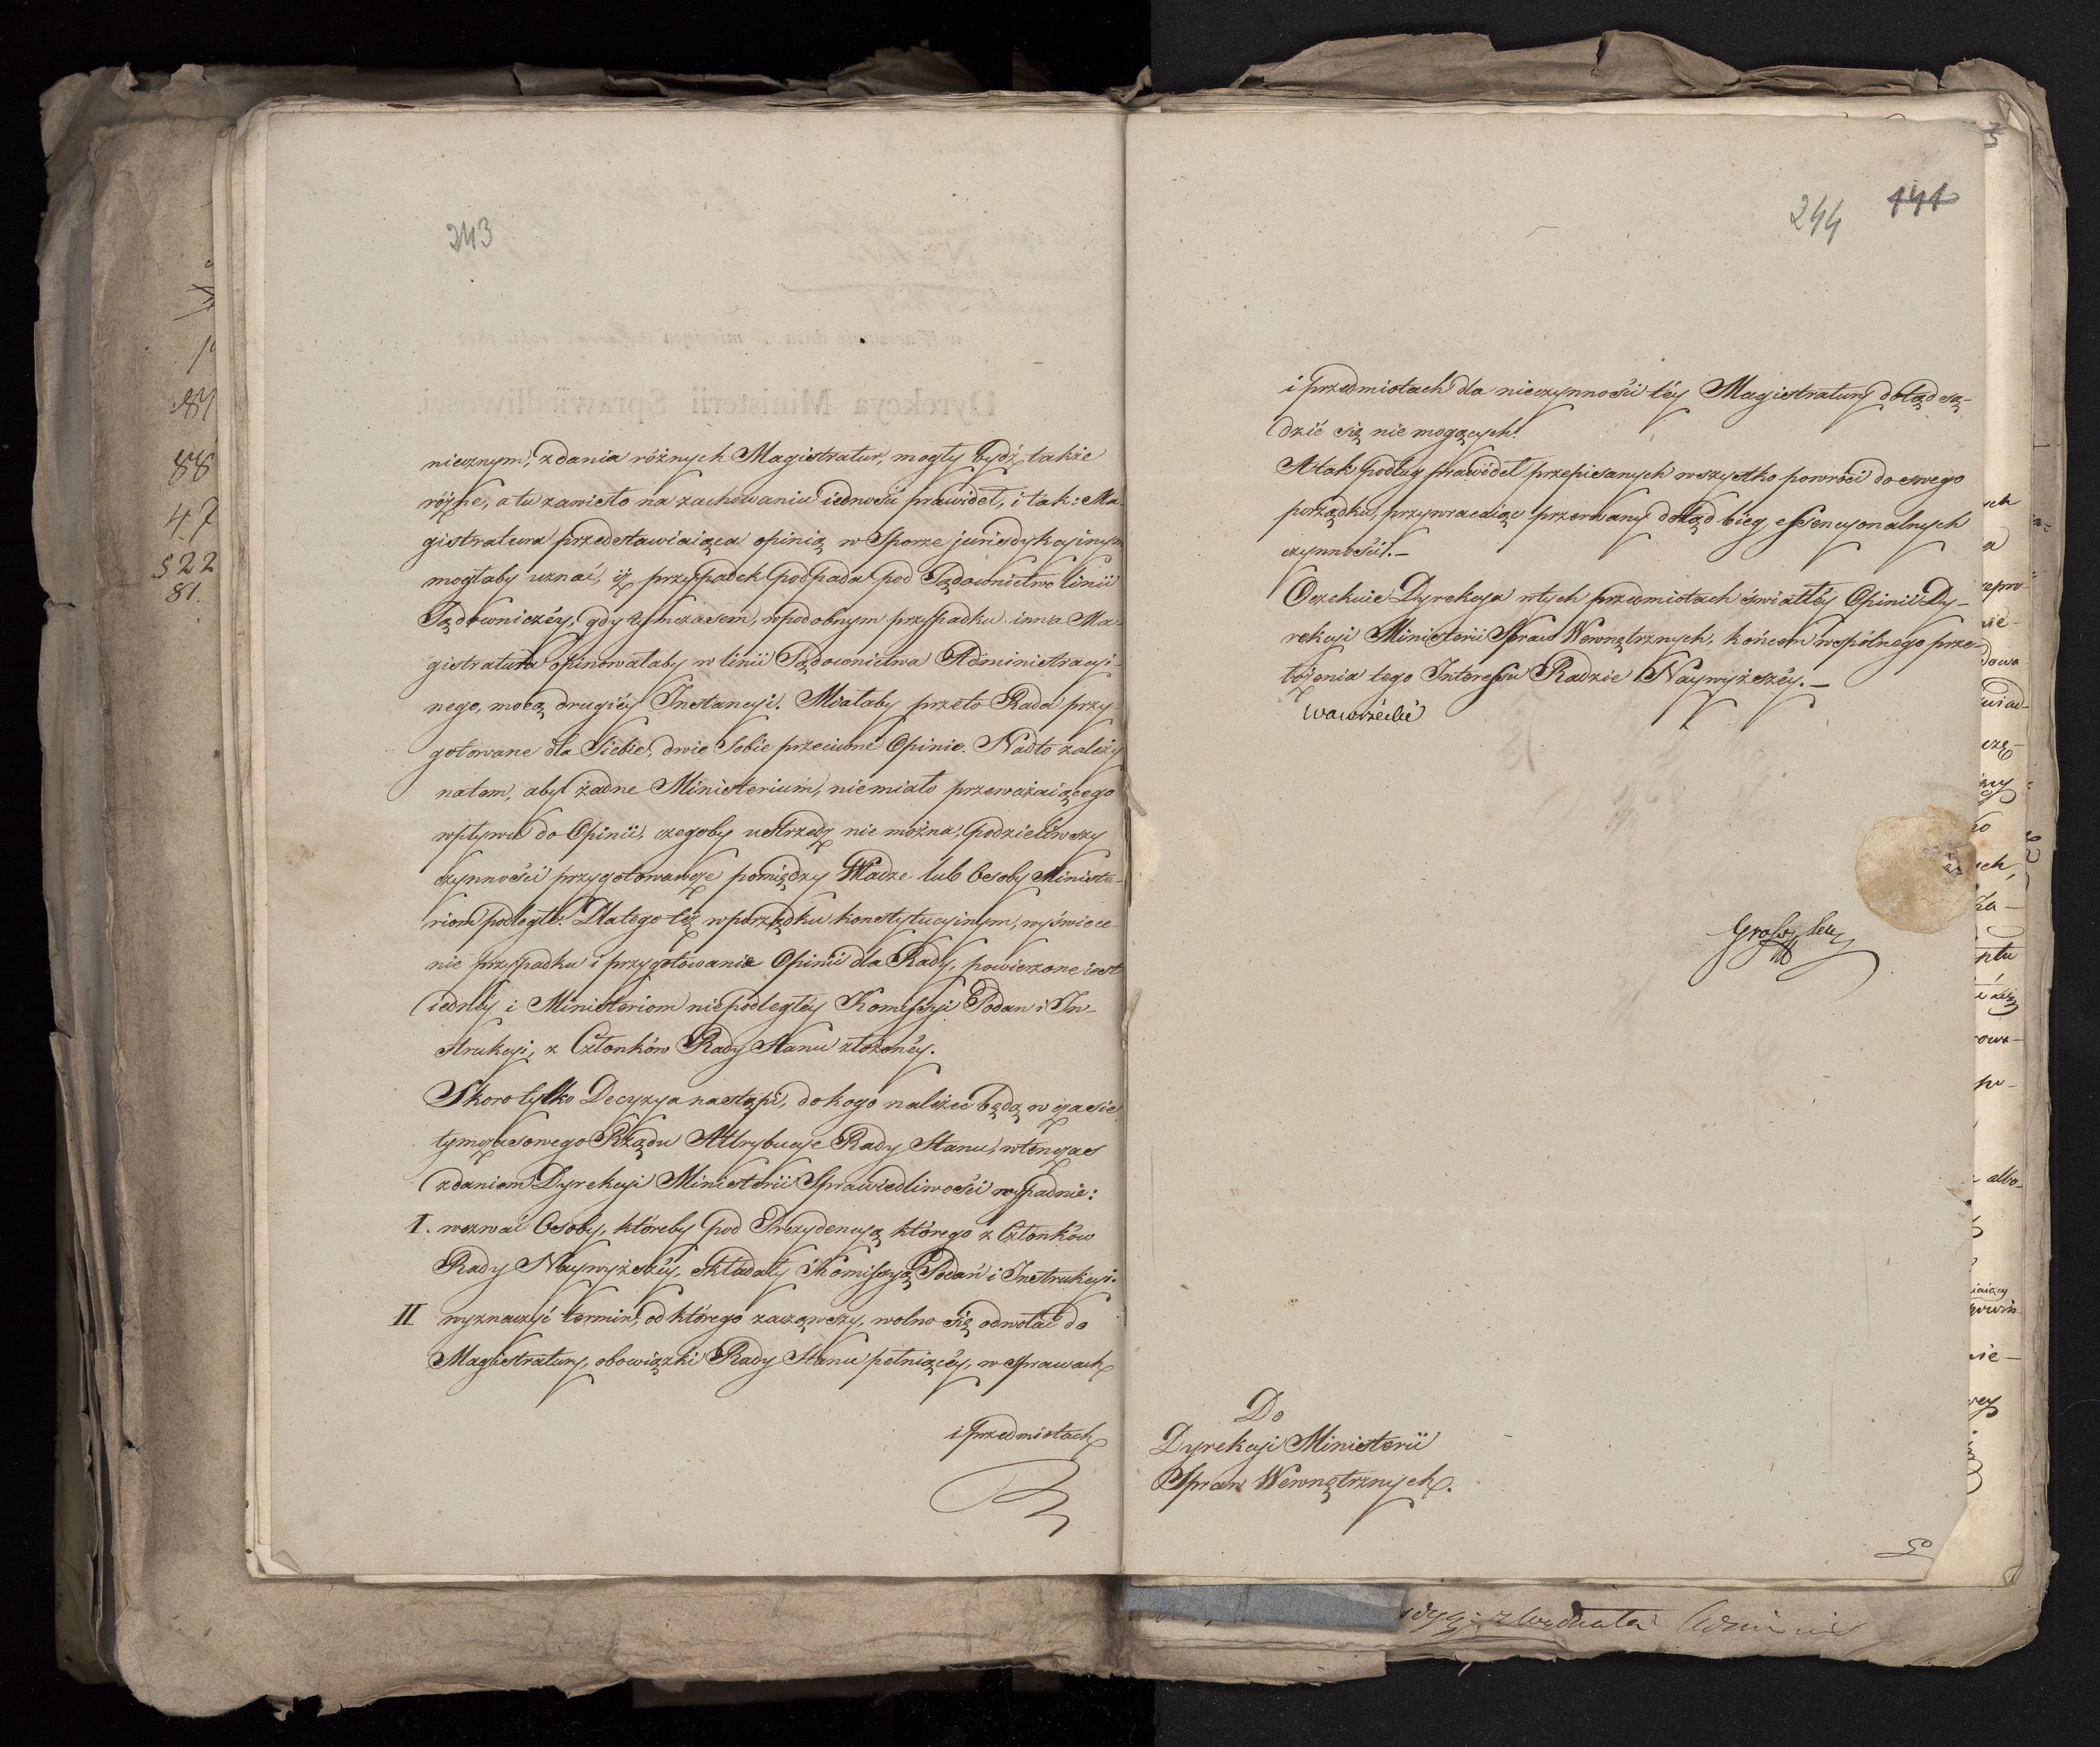 243
niecznym, zdania różnych Magistratur, mogły bydź także
różne, a tu zawisło na zachowaniu iedności prawideł, i tak: Ma-
gistratura przedstawiaiąca opinią w Sporze jurisdykcyinym
mogłaby uznać, iż przypadek podpada pod Sądownictwo linii
Sądowniczéy, gdy tymczasem, w podobnym przypadku inna Ma-
gistratura opinowałaby w linii Sądownictwa Administracyi-
nego, mocą drugiéy Instancyi. Miałaby przeto Rada przy-
gotowane dla Siebie, dwie Sobie przeciwne Opinie. Nadto zależy
natem, aby żadne Ministerium, niemiało przeważaiącego
wpływu do Opinii, czegoby ustrzedz nie można, podzieliwszy
czynności przygotowawcze pomiędzy Władze lub Osoby Ministe-
riom podległe. Dlatego też w porządku konstytucyinym, wyświece-
nie przypadku i przygotowanie Opinii dla Rady, powierzone iest
iednéy i Ministeriom niepodległéy Komissyi Podan i In-
strukcyi, z Członków Rady Stanu złożonéy.
Skoro tylko Decyzya nastąpi, do kogo należeć będą w czasie
tymczasowego Rządu Attrybucye Rady Stanu, wtenczas
zdaniem Dyrekcyi Ministerii Sprawiedliwości wypadnie:
I. wezwać Osoby, któreby pod Prezydencyą którego z Członków
Rady Naywyższéy, składały Komissyą Podań i Instrukcyi.
II wyznaczyć termin, od którego zacząwszy, wolno się odwołać do
Magistratury, obowiązki Rady Stanu pełniącéy, w Sprawach
i Przedmiotach
244 141
i przedmiotach dla nieczynności téy Magistratury dotąd są-
dzić się nie mogących.
A tak podług prawideł przepisanych wszystko powróci do swego
porządku, przywracaiąc przerwany dotąd bieg, essencyonalnych
czynności.—
Oczekuie Dyrekcya w tych przedmiotach światłéy Opinii Dy-
rekcyi Ministerii Spraw Wewnętrznych, końcem wspólnego prze-
łożenia tego Interessu Radzie Naywyższéy.—
Wawrzecki
Do
Dyrekcyi Ministerii
Spraw Wewnętrznych.
88
47
522
81.